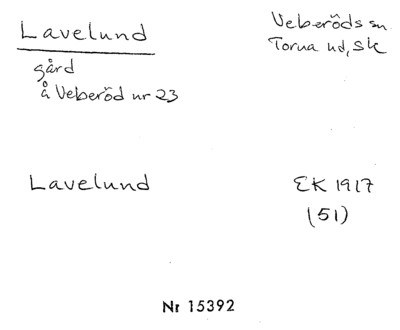 Lavelund
Veberöds sn
Torna hd, Sk
gård
å Veberöd nr 23
Lavelund
EK 1917
(51)
Nr 15392